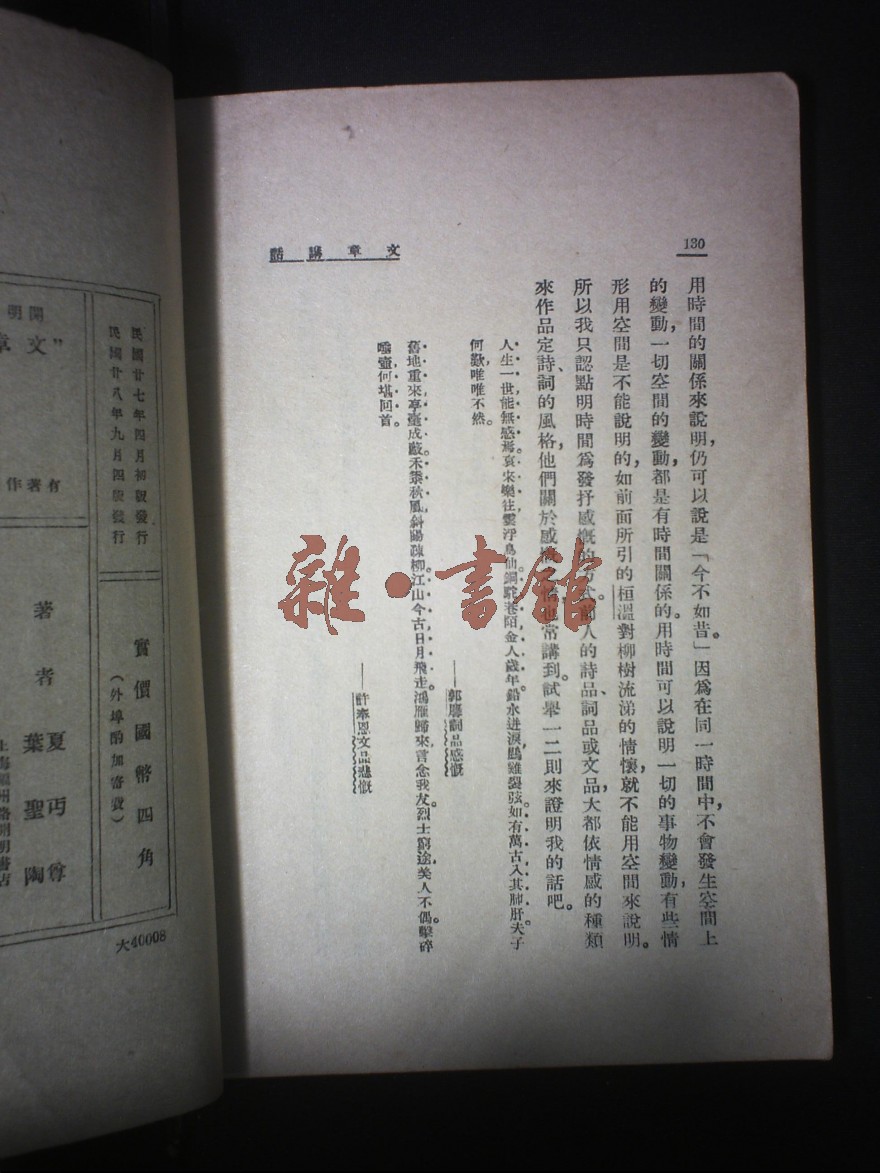 130
文章講話
用時間的關係來說明，仍可以說是「今不如昔。」因爲在同一時間中，不會發生空間上
的變動，一切空間的變動，都是有時間關係的。用時間可以說明一切的事物變動，有些情
形用空間是不能說明的，如前面所引的桓溫對柳樹流涕的情懷，就不能用空間來說明。
所以我只認點明時間爲發抒感慨的方式。前人的詩品、詞品或文品，大都依情感的種類
來作品定詩、詞的風格，他們關於感慨也常講到。試舉一二則來證明我的話吧。
人生一世，能無感焉。哀來樂往，雲浮鳥仙。銅駝巷陌，金人歲年。鉛水迸淚，鵾雞裂弦。如有萬古，入其肺肝。夫子
何歎，唯唯不然。
——郭麐詞品感慨
舊地重來，亭臺成蔽。禾黍秋風，斜陽疎柳。江山今古，日月飛走。鴻雁歸來，言念我友。烈士窮途，美人不偶。擊碎
唾壺，何堪回首。
——許奉恩文品悲慨
雜·書館
開明
“文章
有著作
著者
夏丏尊
葉聖陶
民國廿七年四月初版發行
民國廿八年九月四版發行
實價國幣四角
（外埠酌加寄費）
大40008